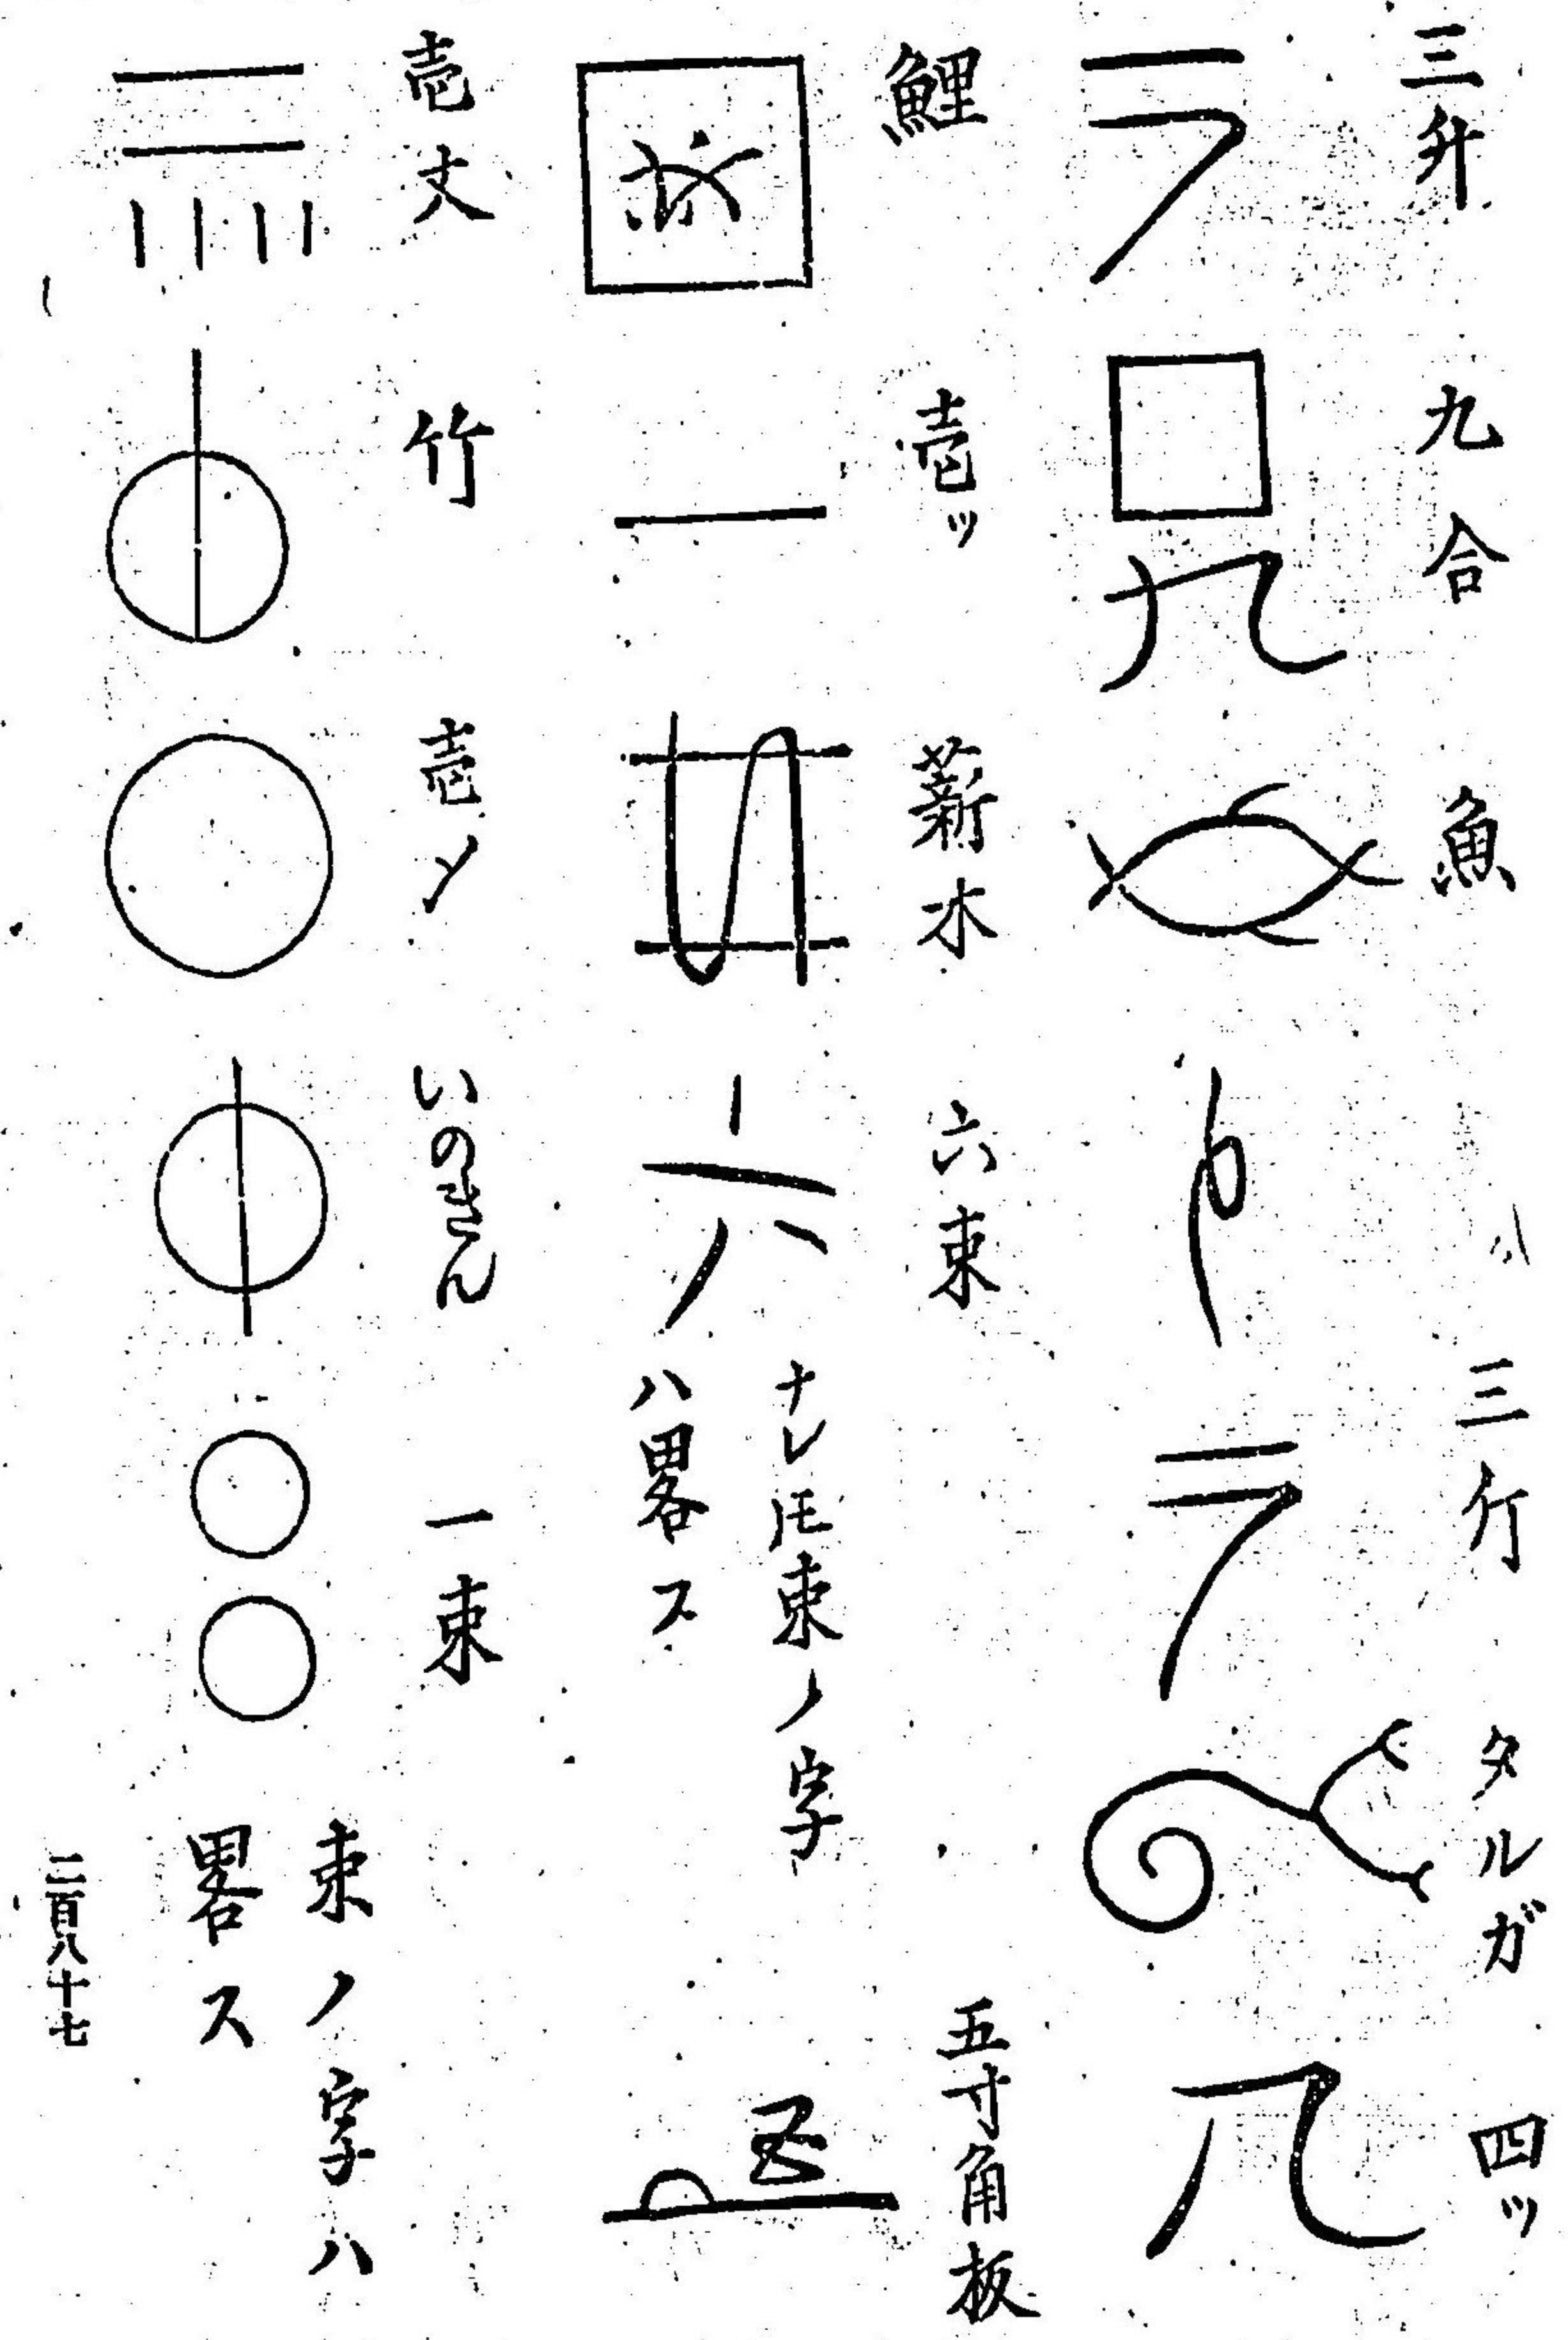 三升
九合
魚
三行
タルガ
四ッ
鯉
壱ッ
薪木
六束
ナレ㆒モ束ノ字
ハ畧ス
五寸角板
壱丈
竹
壱〆
いのきん
一束
束ノ字ハ
畧ス
二百八十七